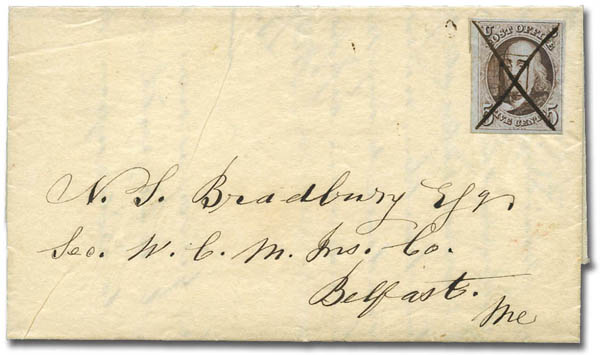 U S
POST OFFICE
5 FIVE CENTS 5
N. S. Bradbury Esqr
Sec. W. C. M. Ins. Co.
Belfast.
Me